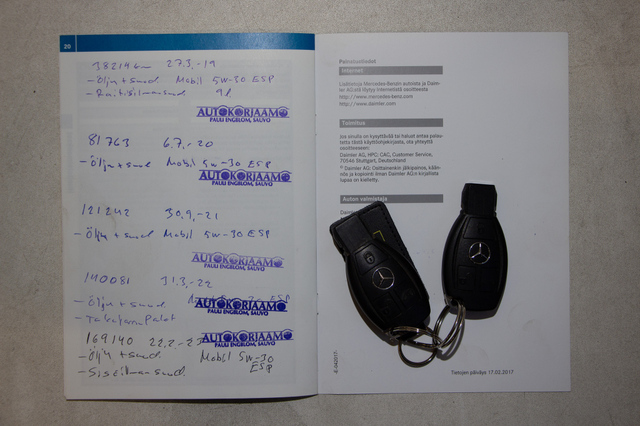 20
38214km 27.3.-19
- Öljy + suod Mobil 5w-30 ESP
- Raitisilmansuod 9l
AUTOKORJAAMO
PAULI ENGBLOM, SAUVO
81763 6.7.-20
- Öljy + suod Mobil 5w-30 ESP
AUTOKORJAAMO
PAULI ENGBLOM, SAUVO
121242 30.9.-21
- Öljy + suod Mobil 5w-30 ESP
AUTOKORJAAMO
PAULI ENGBLOM, SAUVO
140081 31.3.-22
- Öljy + suod Mobil 5w-30 ESP
AUTOKORJAAMO
PAULI ENGBLOM, SAUVO
- Takajarru Palat
169140 22.2-23
AUTOKORJAAMO
PAULI ENGBLOM, SAUVO
- Öljy + suod Mobil 5w-30
ESP
- Sisäilmansuod
Painotiedot
Internet
Lisätietoja Mercedes-Benzin autoista ja Daim-
ler AG:stä löytyy internetistä osoitteesta
http://www.mercedes-benz.com
http://www.daimler.com
Toimitus
Jos sinulla on kysyttävää tai haluat antaa palau-
tetta tästä käyttöohjekirjasta, ota yhteyttä
osoitteeseen:
Daimler AG, HPC: CAC, Customer Service,
70546 Stuttgart, Deutschland
© Daimler AG: Osittainenkin jälkipainos, kään-
nös ja kopiointi ilman Daimler AG:n kirjallista
lupaa on kielletty.
Auton valmistaja
Daimler
Tietojen päiväys 17.02.2017